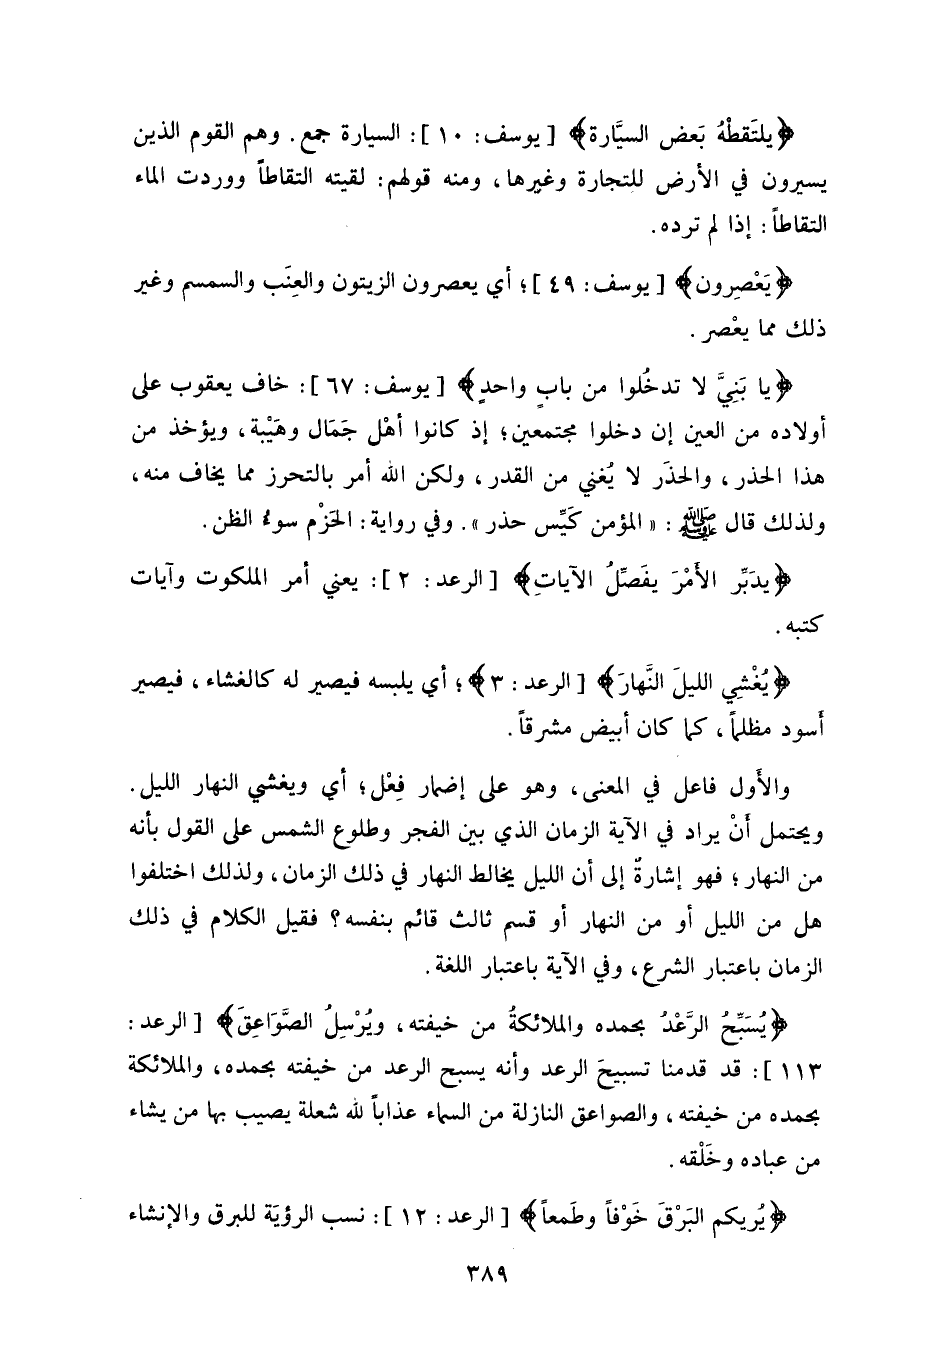 ﴿يلتَقطْهُ بَعض السيَّارة﴾ [ يوسف: ١٠ ]: السيارة جمع. وهم القوم الذين
يسيرون في الأرض للتجارة وغيرها، ومنه قولهم: لقيته التقاطاً ووردت الماء
التقاطاً: إذا لم ترده.
﴿يَعْصِرون﴾ [ يوسف: ٤٩ ]؛ أي يعصرون الزيتون والعِنَب والسمسم وغير
ذلك مما يعْصر.
﴿يا بَنِيَّ لا تدخُلوا من بابٍ واحدٍ﴾ [ يوسف: ٦٧ ]: خاف يعقوب على
أولاده من العين إن دخلوا مجتمعين؛ إذ كانوا أهْل جَمَال وهَيْبة، ويؤخذ من
هذا الحذر، والحذَر لا يُغني من القدر، ولكن الله أمر بالتحرز مما يخاف منه،
ولذلك قال ﷺ: «المؤمن كَيِّس حذر». وفي رواية: الحَزْم سوءُ الظن.
﴿يدَبِّر الأَمْرَ يفَصِّلُ الآياتِ﴾ [ الرعد: ٢ ]: يعني أمر الملكوت وآيات
كتبه.
﴿يُغْشِي الليلَ النَّهارَ﴾ [ الرعد: ٣﴾؛ أي يلبسه فيصير له كالغشاء، فيصير
أَسود مظلماً، كما كان أبيض مشرقاً.
والأَول فاعل في المعنى، وهو على إضمار فِعْل؛ أي ويغشي النهار الليل.
ويحتمل أَنْ يراد في الآية الزمان الذي بين الفجر وطلوع الشمس على القول بأنه
من النهار؛ فهو إشارةٌ إلى أن الليل يخالط النهار في ذلك الزمان، ولذلك اختلفوا
هل من الليل أو من النهار أو قسم ثالث قائم بنفسه؟ فقيل الكلام في ذلك
الزمان باعتبار الشرع، وفي الآية باعتبار اللغة.
﴿يُسَبِّحُ الرَّعْدُ بحمده والملائكةُ من خيفته، ويُرْسِلُ الصَّوَاعِقَ﴾ [ الرعد:
١١٣ ]: قد قدمنا تسبيحَ الرعد وأنه يسبح الرعد من خيفته بحمده، والملائكة
بحمده من خيفته، والصواعق النازلة من السماء عذاباً لله شعلة يصيب بها من يشاء
من عباده وخَلْقه.
﴿يُريكم البَرْقَ خَوْفاً وطَمعاً﴾ [ الرعد: ١٢ ]: نسب الرؤيَة للبرق والإنشاء
٣٨٩